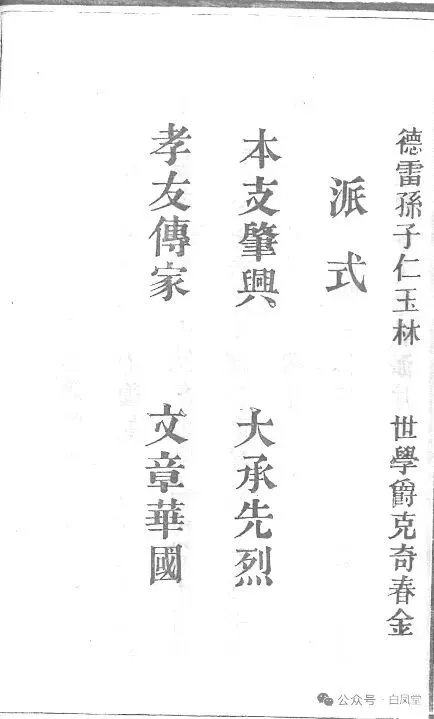 德雷孫子仁玉林 世學爵克奇春金
派式
本支肇興 大承先烈
孝友傳家 文章華國
公众号 · 白凤堂